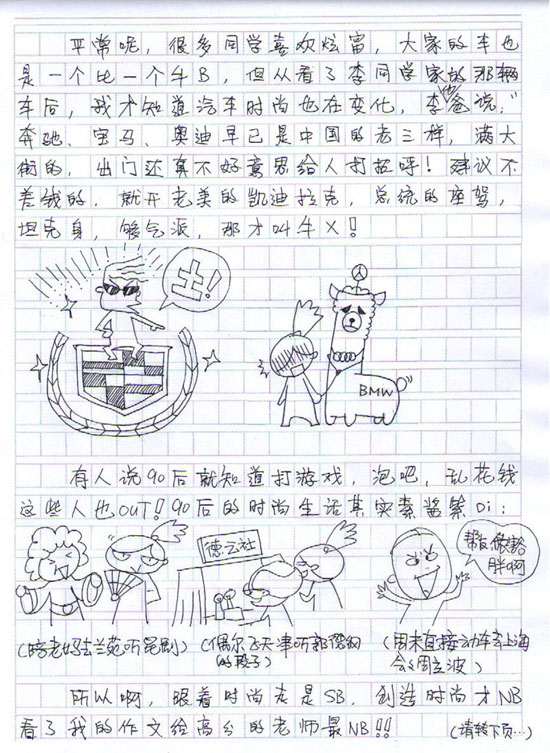 平常呢，很多同学喜欢炫富，大家的车也
是一个比一个牛B，但从看了李同学家的那辆
车后，我才知道汽车时尚也在变化，李他爸说，"
奔驰、宝马、奥迪早已是中国的老三样，满大
街的，出门还真不好意思给人打招呼！建议不
差钱的，就开老美的凯迪拉克，总统的座驾，
坦克身，够气派，那才叫牛X！
土！
BMW
有人说90后就知道打游戏，泡吧，乱花钱
这些人也OUT！90后的时尚生活其实素酱紫Di：
德云社
帮侬做豁
胖啊
(陪老妈去兰苑听昆剧)
(偶尔飞天津听郭德纲
的段子)
(周末直接动车去上海
会会周立波)
所以啊，跟着时尚走是SB，创造时尚才NB
看了我的作文给高分的老师最NB!!
(请转下页…)